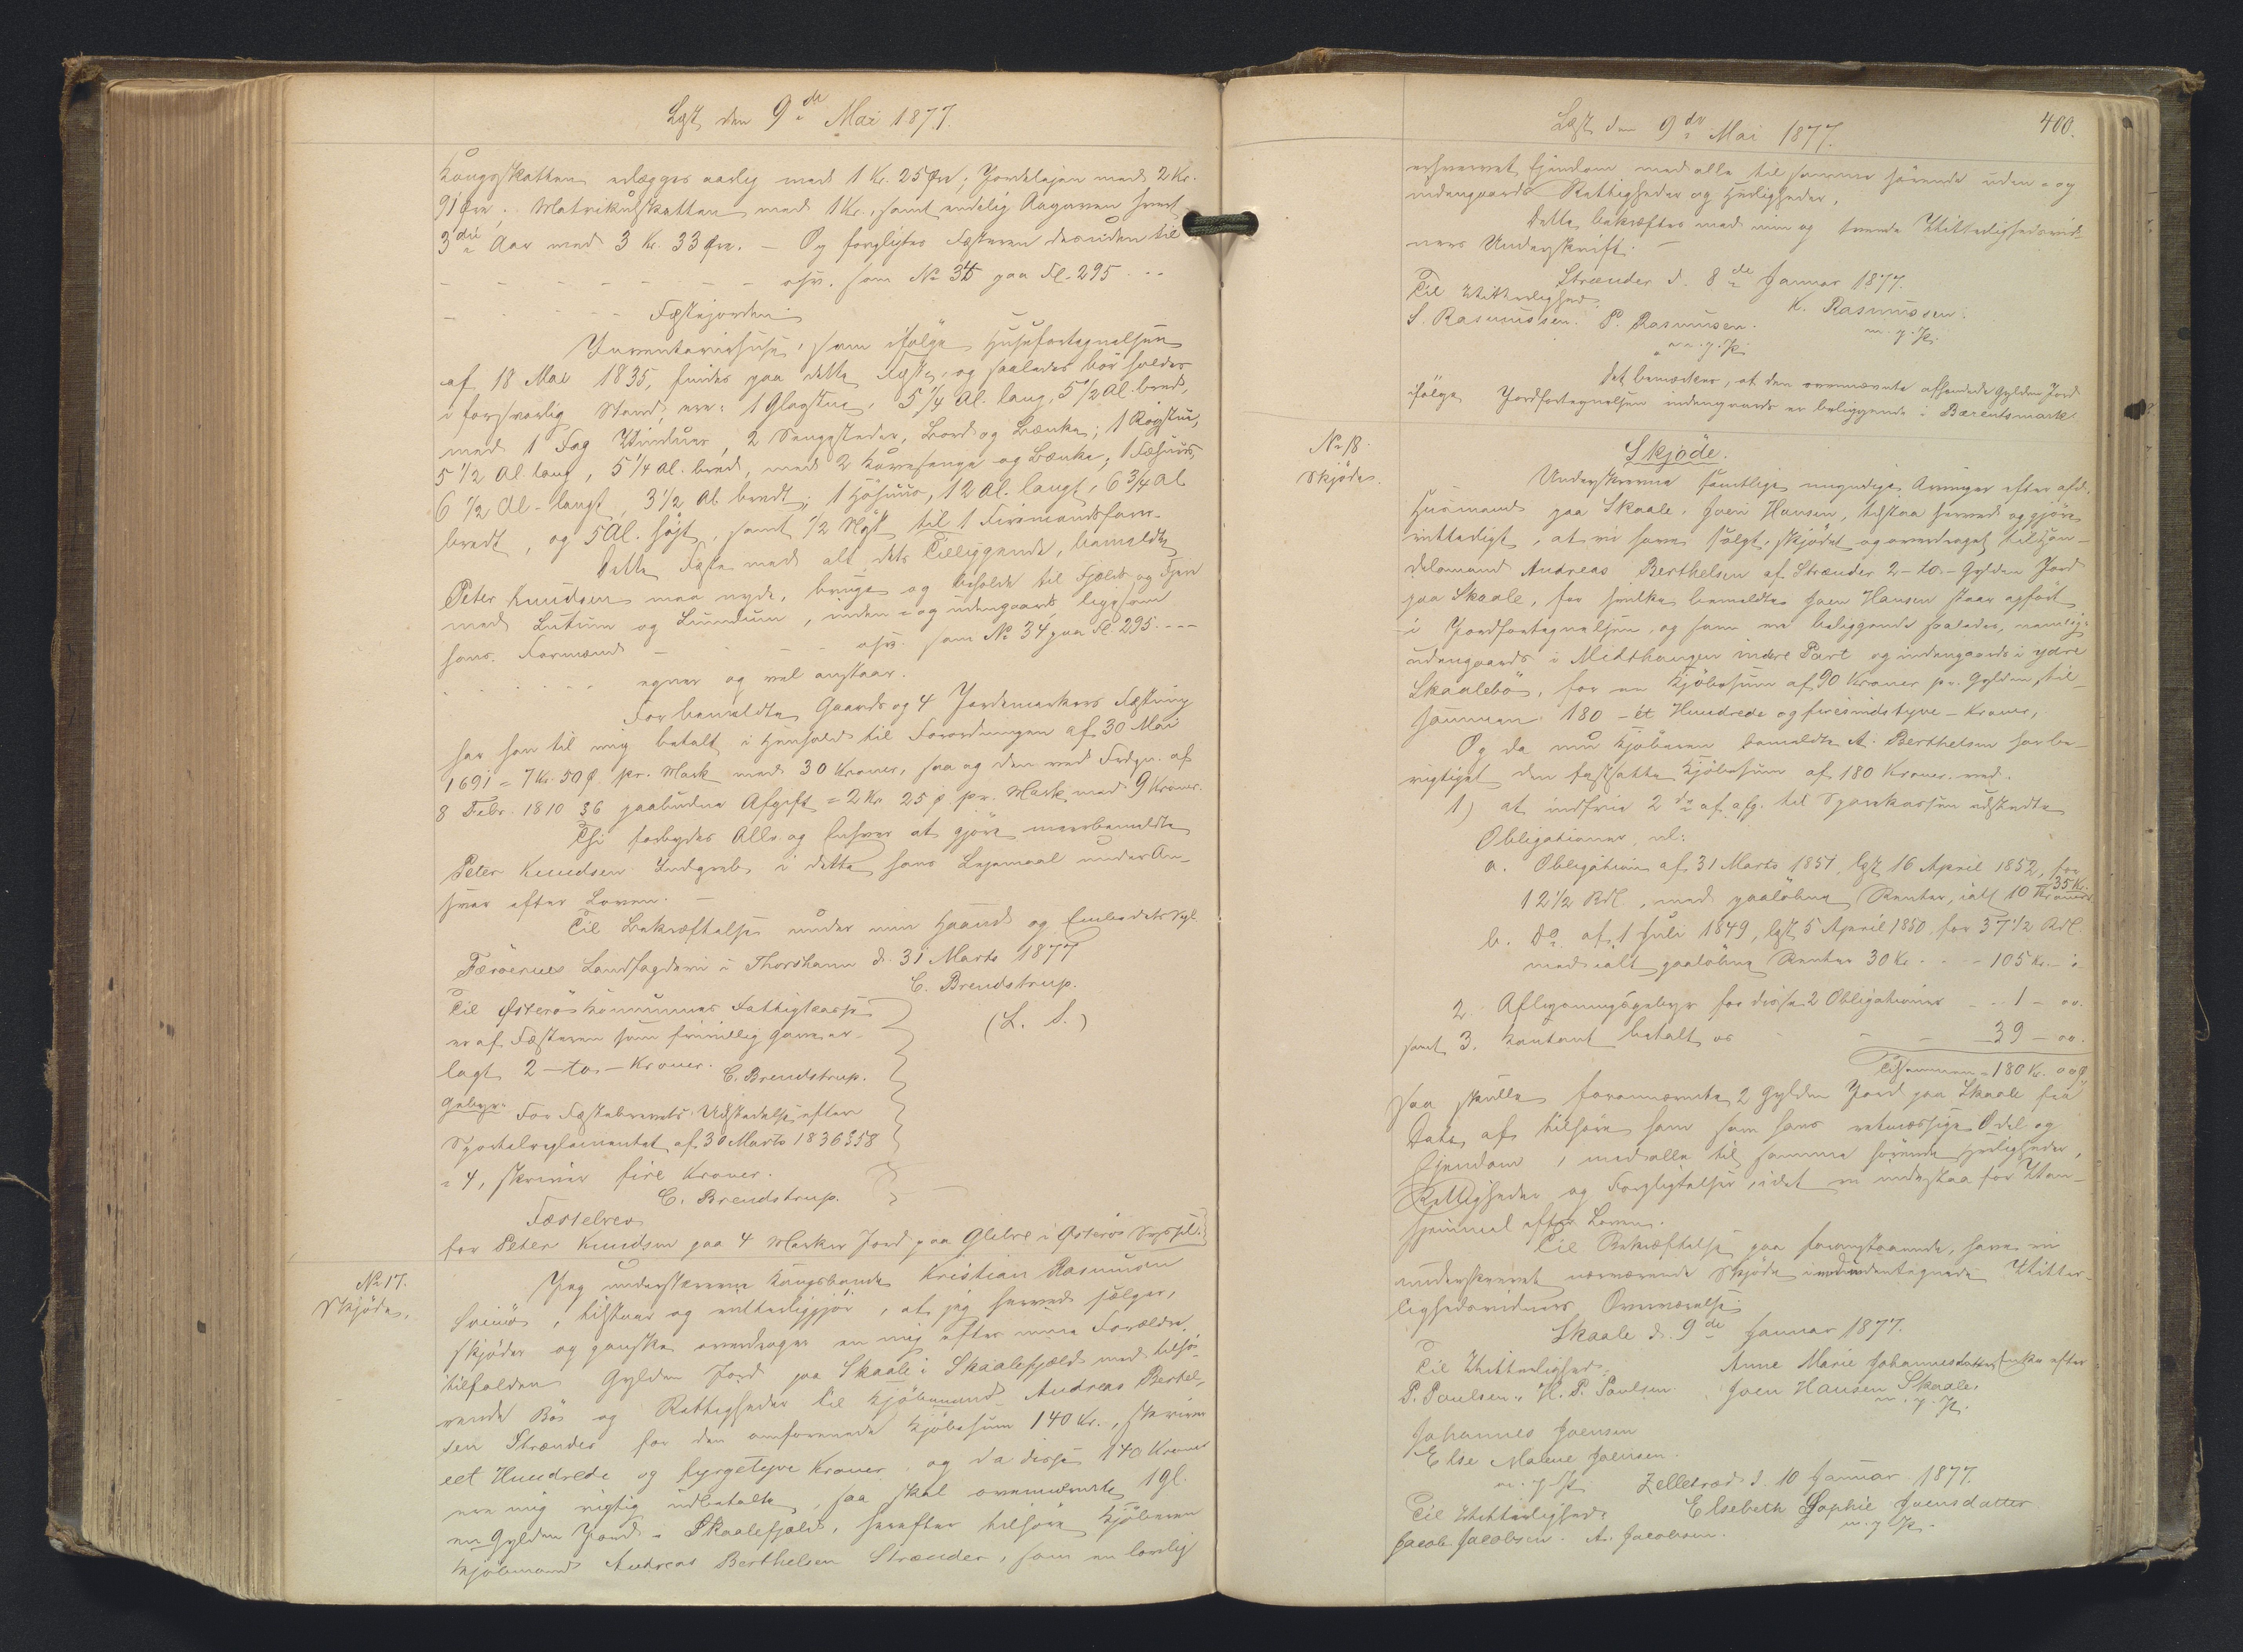 Læst den 9de Mai 1877.
Kongsskatten erlægges aarlig med 1 Kr. 25 Øre, Jordelejen med 2 Kr.
91 Øre, Matrikulskatten med 1 Kr., samt endelig Aagaven hvert
3die Aar med 3 Kr. 33 Øre. — Og forpligtes Fæsteren desuden til
- - - - - - - osv. som No 34 paa Fol. 295 - - -
- - - - - Fæstejorden.
Inventariehuse, som ifølge Husefortegnelsen
af 18 Mai 1835, findes paa dette Fæste, og saaledes bør holdes
i forsvarlig Stand, ere: 1 Glasstue, 5 1/4 Al. lang, 5 1/2 Al. bred,
med 1 Fag Vinduer, 2 Sengesteder, Bord og Bænke; 1 Rogstue,
5 1/2 Al. lang, 5 1/4 Al. bred, med 2 Kovesenge og Bænke; 1 Fæhuus,
6 1/2 Al. langt, 3 1/2 Al. bredt; 1 Høhuus, 12 Al. langt, 6 3/4 Al.
bredt, og 5 Al. højt, samt 1/2 Nøst til 1 Firemandsfar.
Dette Fæste med alt dets Tilliggende, bemeldte
Peter Knudsen maa nyde, bruge og beholde til Fjelds og Fjære
med Lutum og Lundum, inden- og udengaards, ligesom
hans Formænd - - - - osv. som No 34 paa Fol. 295 - - -
- - - - - egner og vel anstaar.
For bemeldte Gaards og 4 Jordemarkers Fæstning
har han til mig betalt i Henhold til Forordningen af 30 Mai
1691 = 7 Kr. 50 Ø. pr. Mark med 30 Kroner, saa og den ved Frdgn. af
8 Febr. 1810 §6 paabudne Afgift = 2 Kr. 25 Ø. pr. Mark, med 9 Kroner.
Thi forbydes Alle og Enhver at gjøre meerbemeldte
Peter Knudsen Indgreb i dette hans Lejemaal under An-
svar efter Loven.
Til Bekræftelse under min Haand og Embedets Segl.
Færøernes Landfogderi i Thorshavn d. 31 Marts 1877
C. Brendstrup.
(L. S.)
Til Østerø Kommunes Fattigkasse
er af Fæsteren som frivillig Gave er-
lagt 2 - to - Kroner.
C. Brendstrup.
Gebyr: For Fæstebrevets Udstedelse efter
Sportelreglementet af 30 Marts 1836 §58
= 4, skriver fire Kroner.
C. Brendstrup.
Fæstebrev
for Peter Knudsen paa 4 Marker Jord paa Glibre i Østerøs Syssel.
No 17.
Skjøde.
Jeg underskrevne Kongsbonde Kristian Rasmusen
Svinø, tilstaar og vitterliggjør, at jeg herved sælger,
skjøder og ganske overdrager en mig efter mine Forældre
tilfalden Gylden Jord paa Skaale i Skaalefjæld med tilhø-
rende Bø og Rettigheder til Kjøbmand Andreas Bertel-
sen Strænder for den omforenede Kjøbesum 140 Kr., skriver
eet Hundrede og fyrgetyve Kroner, og da disse 140 Kroner
ere mig rigtig udbetalte, saa skal ovennævnte 1 gl.
en Gylden Jord i Skaalefjæld, herefter tilhøre Kjøberen
Kjøbmand Andreas Berthelsen Strænder, som en lovlig
Læst den 9de Mai 1877.
400.
erhvervet Ejendom med alle til samme hørende uden- og
indengaards Rettigheder og Herligheder.
Dette bekræftes med min og tvende Vitterlighedsvid-
ners Underskrift. —
Strænder d. 8de Januar 1877.
Til Vitterlighed.
K. Rasmussen.
S. Rasmussen. P. Rasmusen.
m. f. P.
m. f. P.
Det bemærkes, at den ovennævnte afhændede Gylden Jord
ifølge Jordfortegnelsen indengaards er beliggende i Bærentsmark.
No 18.
Skjøde.
Skjøde.
Underskrevne samtlige myndige Arvinger efter afd.
Huusmand paa Skaale, Joen Hansen, tilstaa herved og gjøre
vitterligt, at vi have solgt, skjødet og overdraget til Han-
delsmand Andreas Berthelsen af Strænder 2 - to - Gylden Jord
paa Skaale, for hvilke bemeldte Joen Hansen staar opført
i Jordfortegnelsen, og som ere beliggende saaledes, nemlig:
udengaards i Midthaugen indre Part og indengaards i ydre
Skaalebø, for en Kjøbesum af 90 Kroner pr. Gylden, til-
sammen 180 - ét Hundrede og firesindstyve - Kroner,
Og da nu Kjøberen bemeldte A. Berthelsen har be-
rigtiget den fastsatte Kjøbesum af 180 Kroner ved:
1) at indfrie 2de af afg. til Sparekassen udstedte
Obligationer, nl:
a. Obligation af 31 Marts 1851, læst 16 April 1852, for
12 1/2 Rdl., med paaløbne Renter, ialt 10 Kroner 35 Kr.
b. Do af 1 Juli 1849, læst 5 April 1850, for 37 1/2 Rdl.
med ialt paaløbne Renter 30 Kr. - - - 105 Kr. - "
2. Aflysningsgebyr for disse 2 Obligationer - - 1 - oo.
samt 3. Kontant betalt os - - - 39 - oo.
Tilsammen = 180 Kr. oo Ø
saa skulle forannævnte 2 Gylden Jord paa Skaale fra
Dato af tilhøre ham som hans retmæssige Odel og
Ejendom, med alle til samme hørende Herligheder,
Rettigheder og Forpligtelser, idet vi indestaa for Van-
hjemmel efter Loven.
Til Bekræftelse paa foranstaaende, have vi
underskrevet nærværende Skjøde i undertegnede Vitter-
lighedsvidners Overværelse
Skaale d. 9de Januar 1877.
Til Vitterlighed:
Anne Marie Johannesdatter, Enke efter
P. Poulsen. H. P. Poulsen.
Joen Hansen Skaale.
m. f. P.
Johannes Joensen
Else Malene Joensen.
m. f. P.
Zelletræd d. 10 Januar 1877.
Til Vitterlighed:
Elsebeth Sophie Joensdatter
Jacob Jacobsen. A. Jacobsen.
m. f. P.